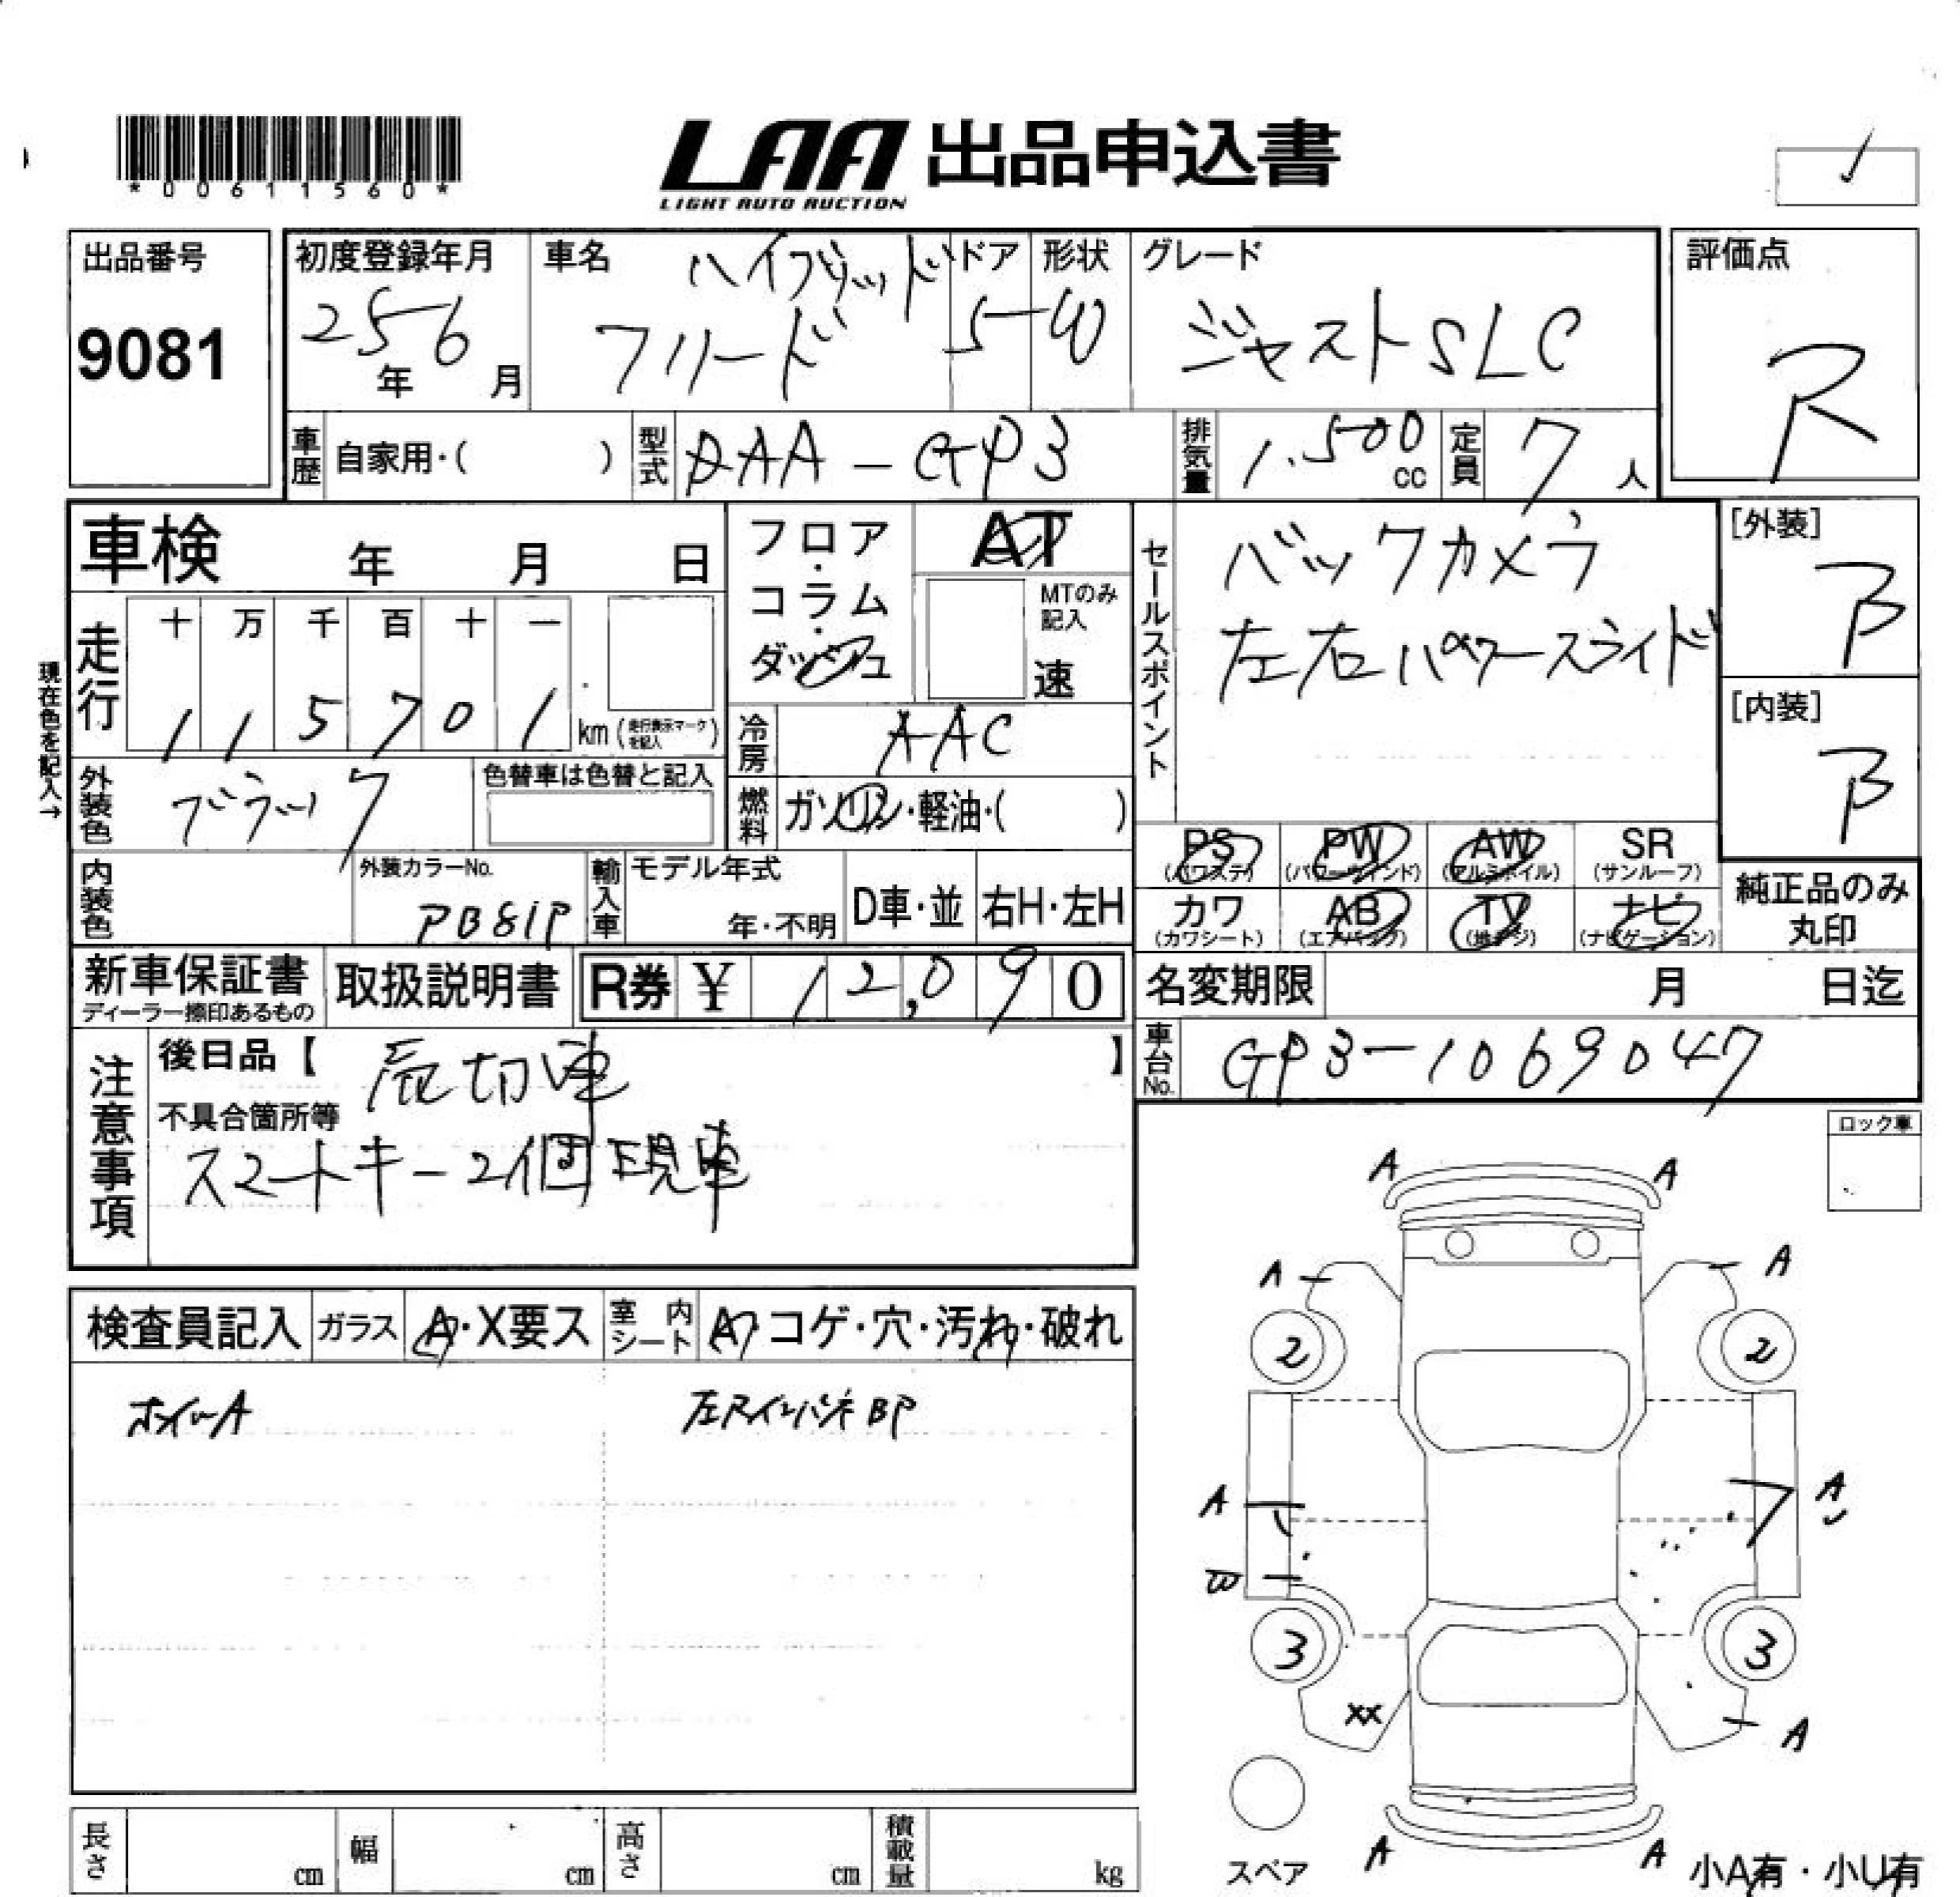 *00611560*
LAA 出品申込書
LIGHT AUTO AUCTION
出品番号
9081
初度登録年月
25年 6月
車名
ハイブリッド
フリード
ドア
5
形状
W
グレード
ジャストSLC
評価点
R
車歴
自家用・( )
型式
DAA-GP3
排気量
1.500 cc
定員
7人
車検 年 月 日
フロア・コラム・ダッシュ
AT
MTのみ記入
速
セールスポイント
バックカメラ
左右パワースライド
[外装]
B
[内装]
B
現在色を記入→
走行
十 万 千 百 十 一
1 1 5 7 0 1 km (走行表示マークを記入)
冷房
AAC
外装色
ブラック
色替車は色替と記入
燃料
ガソリン・軽油・( )
PS (パワステ)
PW (パワーウインド)
AW (アルミホイル)
SR (サンルーフ)
カワ (カワシート)
AB (エアバック)
TV (地デジ)
ナビ (ナビゲーション)
純正品のみ丸印
内装色
外装カラーNo.
PB81P
輸入車
モデル年式
年・不明
D車・並
右H・左H
新車保証書
ディーラー捺印あるもの
取扱説明書
R券 ¥ 12,090
名変期限 月 日迄
車台No.
GP3-1069047
注意事項
後日品【 】
切車
不具合箇所等
スマートキー2個現車
ロック車
検査員記入
ガラス
A・X要ス
室内シート
A・コゲ・穴・汚れ・破れ
ホイールA
左Rインパネ BP
A
A
A
A
2
2
A
A
B
3
3
XX
A
A
A
スペア
小A有・小U有
長さ cm
幅 cm
高さ cm
積載量 kg